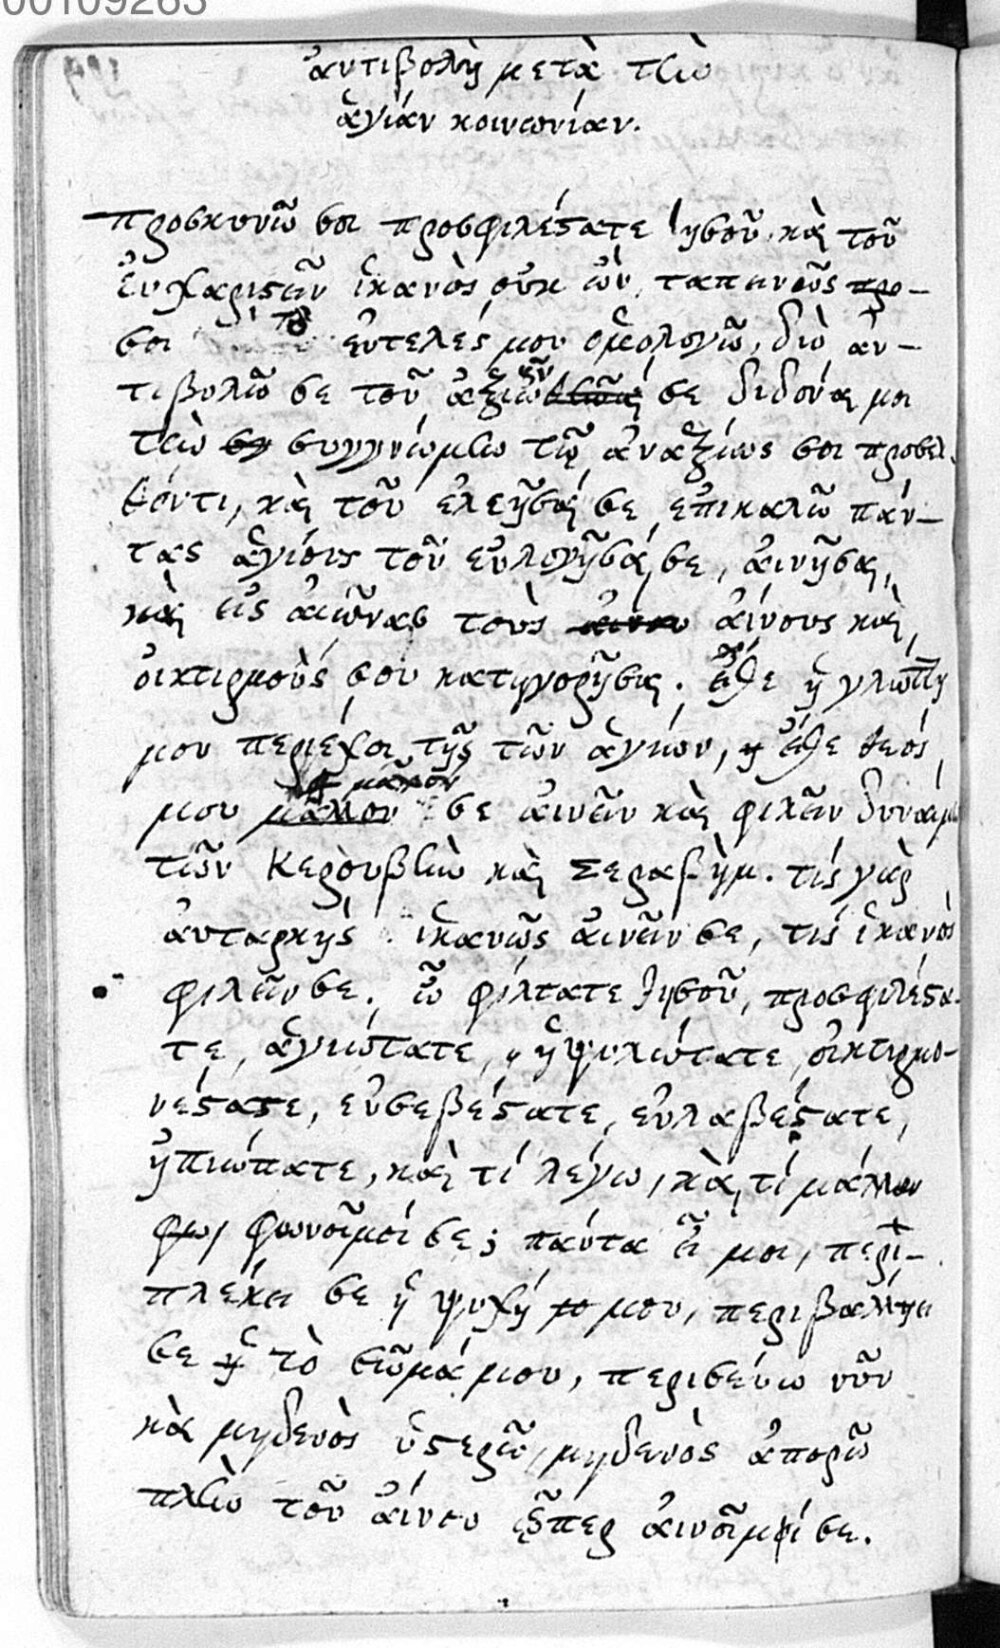 00109263
ἀντιβολὴ μετὰ τὴν
ἁγίαν κοινωνίαν.
προσκυνῶ σοι προσφιλέστατε Ἰησοῦ, καὶ τοῦ
ἐυχαριστεῖν ἱκανὸς οὐκ ὢν, ταπεινῶς προ-
σοι τὸ εὐτελές μου ὁμολογῶ, διὸ ἀν-
τιβολῶ σε τοῦ ἀξιῶσαι σε διδόναι μοι
τὴν συ συγγνώμην τῷ ἀναξίως σοι προσελ-
θόντι, καὶ τοῦ ἐλεῆσαί σε, ἐπικαλῶ πάν-
τας ἁγίους τοῦ εὐλογῆσαί σε, αἰνῆσαι,
καὶ εἰς αἰῶνας τοὺς αἴνου αἴνους καὶ
οἰκτιρμούς σου κατηγορῆσαι. εἴθε ἡ γλῶττη
μου περιέχοι τῆς τῶν ἁγίων, εἴθε θεός
μου μᾶλλον μᾶλλον σε αἰνεῖν καὶ φιλεῖν δυναίμην
τῶν Κερουβὶν καὶ Σεραφὴμ. τίς γὰρ
ἀυταρκὴς ἱκανῶς αἰνεῖν σε, τίς ἱκανὸς
φιλεῖν σε. ὦ φίλτατε Ἰησοῦ, προσφιλέστα-
τε, ἁγιώτατε, ὑψηλώτατε, οἰκτιρμο-
νέστατε, εὐσεβέστατε, εὐλαβέστατε,
ἠπιώτατε, καὶ τί λέγω, καὶ τί μᾶλλον
φω, φωνοῖμοί σε; πάντα εἶ μοι, περι-
πλέκει σε ἡ ψυχή μου, περιβάλλει
σε τὸ σῶμά μου, περισεύω νῦν
καὶ μηδενὸς ὑστερῶ, μηδενὸς ἀπορῶ
πλὴν τοῦ αἴνου ᾧπερ αἰνοῖμί σε.